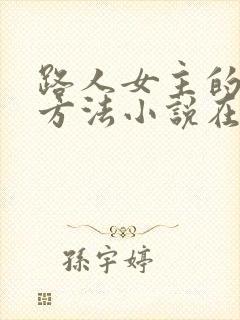 路人女主的
方法小說在
孫宇婷